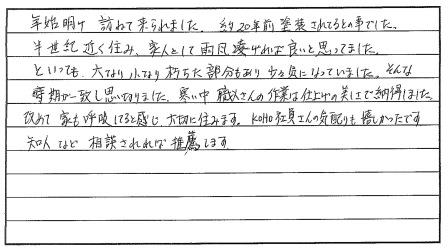 年始明け 訪ねて来られました。約20年前塗装されてるとの事でした。
半世紀近く住み、家人として雨風凌げれば良いと思ってました。
といっても、大なり小なり朽ちた部分もあり少々気になっていました。そんな
時期が一致し思い切りました。寒い中 職人さんの作業は仕上げの美しさで納得しました。
改めて 家も呼吸してると感じ 大切に住みます。KOHO社員さんの気配りも嬉しかったです
知人など 相談されれば推薦します